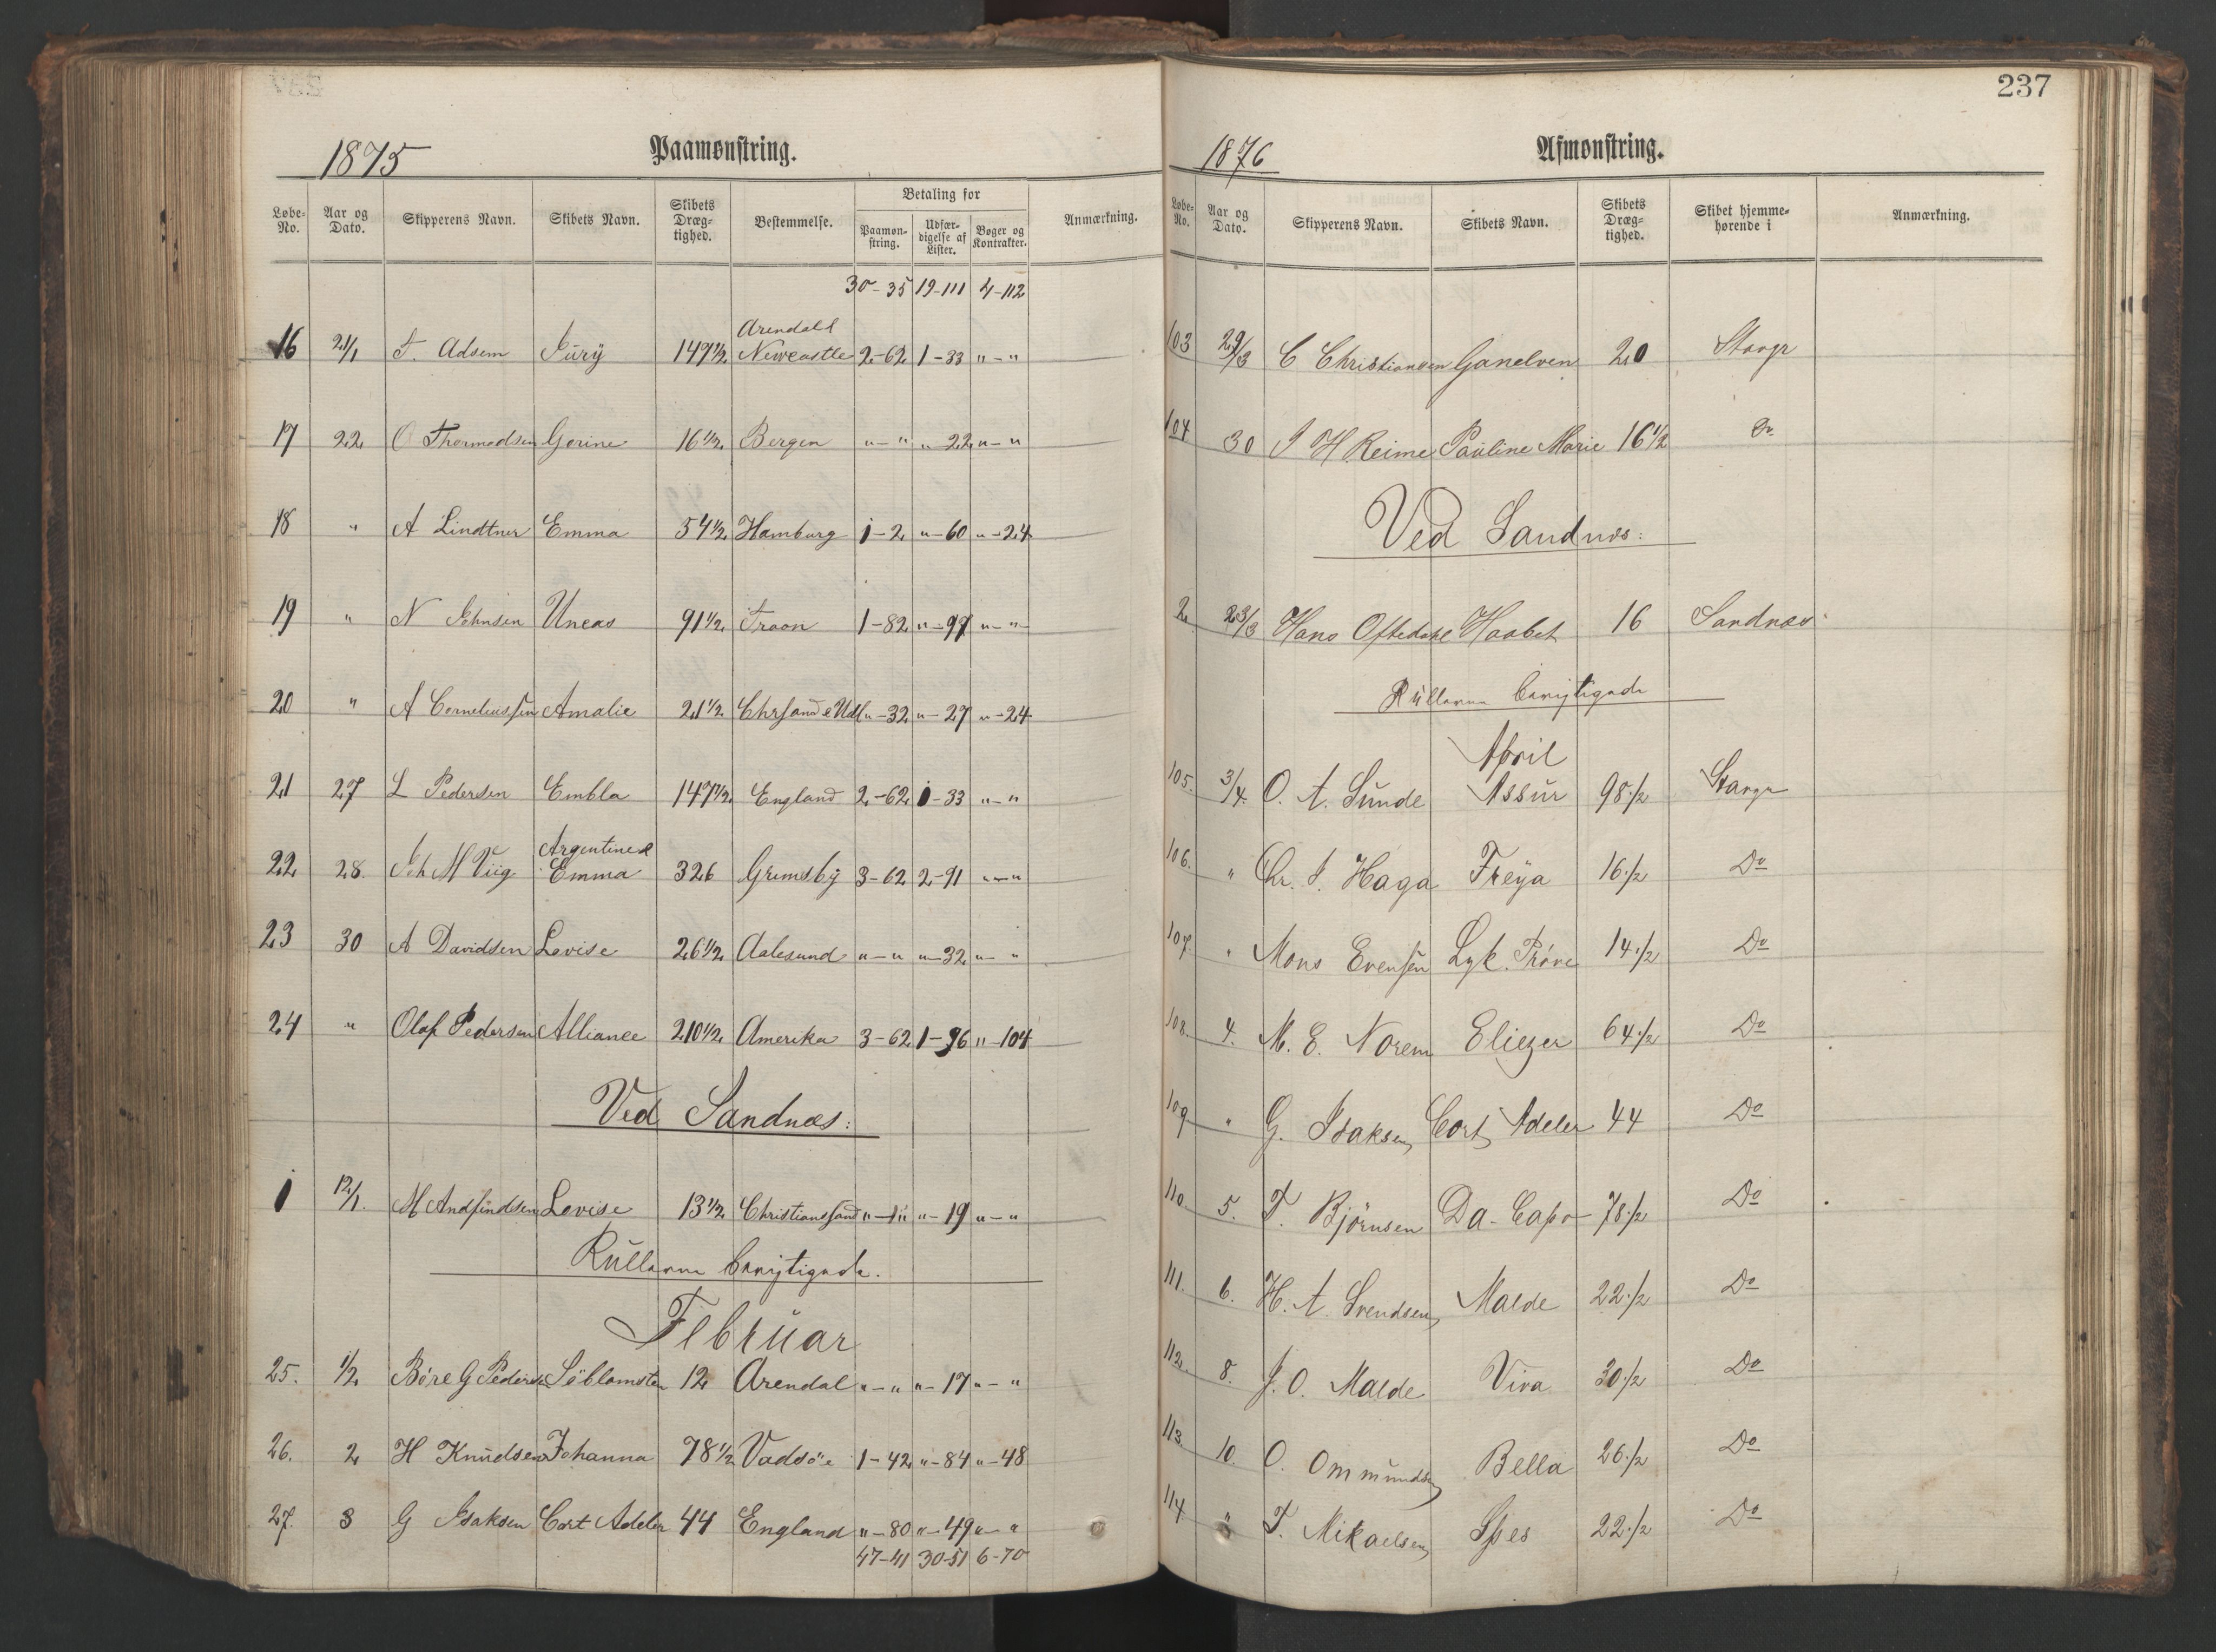 1875 Paamønstring.
Løbe-No. Aar og Dato. Skipperens Navn. Skibets Navn. Skibets Dræg-tighed. Bestemmelse. Betaling for Paamøn-string. Udfær-digelse af Lister. Bøger og Kontrakter. Anmærkning.
30-35 19-111 4-112
16 21/1 T. Adsem Fury 147 1/2 Arendal & Newcastle 2-62 1-33 "-"
17 22 O Thormodsen Gorine 16 1/2 Bergen "-" "-22 "-"
18 " A Lindtner Emma 54 1/2 Hamburg 1-2 "-60 "-24
19 " N Johnsen Uneas 91 1/2 Troon 1-82 "-97 "-"
20 " A Corneliussen Amalie 21 1/2 Chrsand & Udl "-32 "-27 "-24
21 27 L Pedersen Embla 147 1/2 England 2-62 1-33 "-"
22 28. Joh M Viig Argentine & Emma 326 Grimsby 3-62 2-91 "-"
23 30 A Davidsen Lovise 26 1/2 Aalesund "-" "-32 "-"
24 " Olaf Pedersen Alliance 210 1/2 Amerika 3-62 1-96 "-104
Ved Sandnæs:
1 12/1. M Andfindsen Lovise 13 1/2 Christianssand "-" "-19 "-"
Rullerne
Februar
25. 1/2 Børe G Pedersen Søblomsten 12 Arendal "-" "-17 "-"
26. 2 H Knudsen Johanna 78 1/2 Vadsöe 1-42 "-84 "-48
27. 3 G Isaksen Cort Adeler 44 England "-80 "-49 "-"
47-41 30-51 6-70
237
1876 Afmønstring.
Løbe-No. Aar og Dato. Skipperens Navn. Skibets Navn. Skibets Dræg-tighed. Skibet hjemme-hørende i Anmærkning.
103 29/3 C Christiansen Ganelven 20 Stavgr
104 30 J H Reime Pauline Marie 16 1/2 Do
Ved Sandnæs:
2 23/3 Hans Oftedahl Haabet 16 Sandnæs
Rullerne
April
105. 3/4. O. A. Sunde Assur 98 1/2 Stavgr
106. " Chr. J. Haga Freya 16 1/2 Do
107. " Mons Evensen Lyk. Prøve 14 1/2 Do
108. 4. M. E. Norem Eliezer 64 1/2 Do
109 " G. Isaksen Cort Adeler 44 Do
110 5. T. Björnsen Da-Capo 78 1/2 Do
111. 6. H. A. Svendsen Malde 22 1/2 Do
112. 8. J. O. Malde Viva 30 1/2 Do
113. 10. O. Ommundsen Bella 26 1/2 Do
114 " T. Mikaelsen Spes 22 1/2 Do